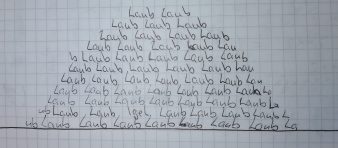 Laub Laub
Laub Laub Laub
Laub Laub Laub Laub
Laub Laub Laub Laub Lau
b Laub Laub Laub Laub Laub
Laub Laub Laub Laub Laub Lau
Laub Laub Laub Laub Laub Laub Lau
Laub Laub Laub Laub Laub Laub La
Laub Laub Laub Laub Laub Laub La
ub Laub Laub Igel Laub Laub Laub Laub L
ub Laub Laub Laub Laub Laub Laub Laub La